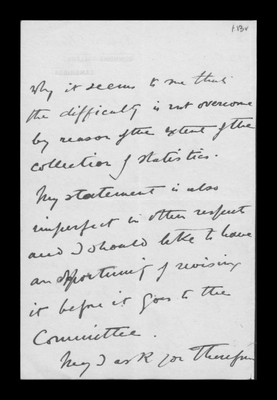 why it seems to me that
the difficulty is not overcome
by reason of the extent of the
collection of statistics.
My statement is also
imperfect in other respect
and I should like to have
an opportunity of revising
it before it goes to the
Committee.
May I ask you therefore